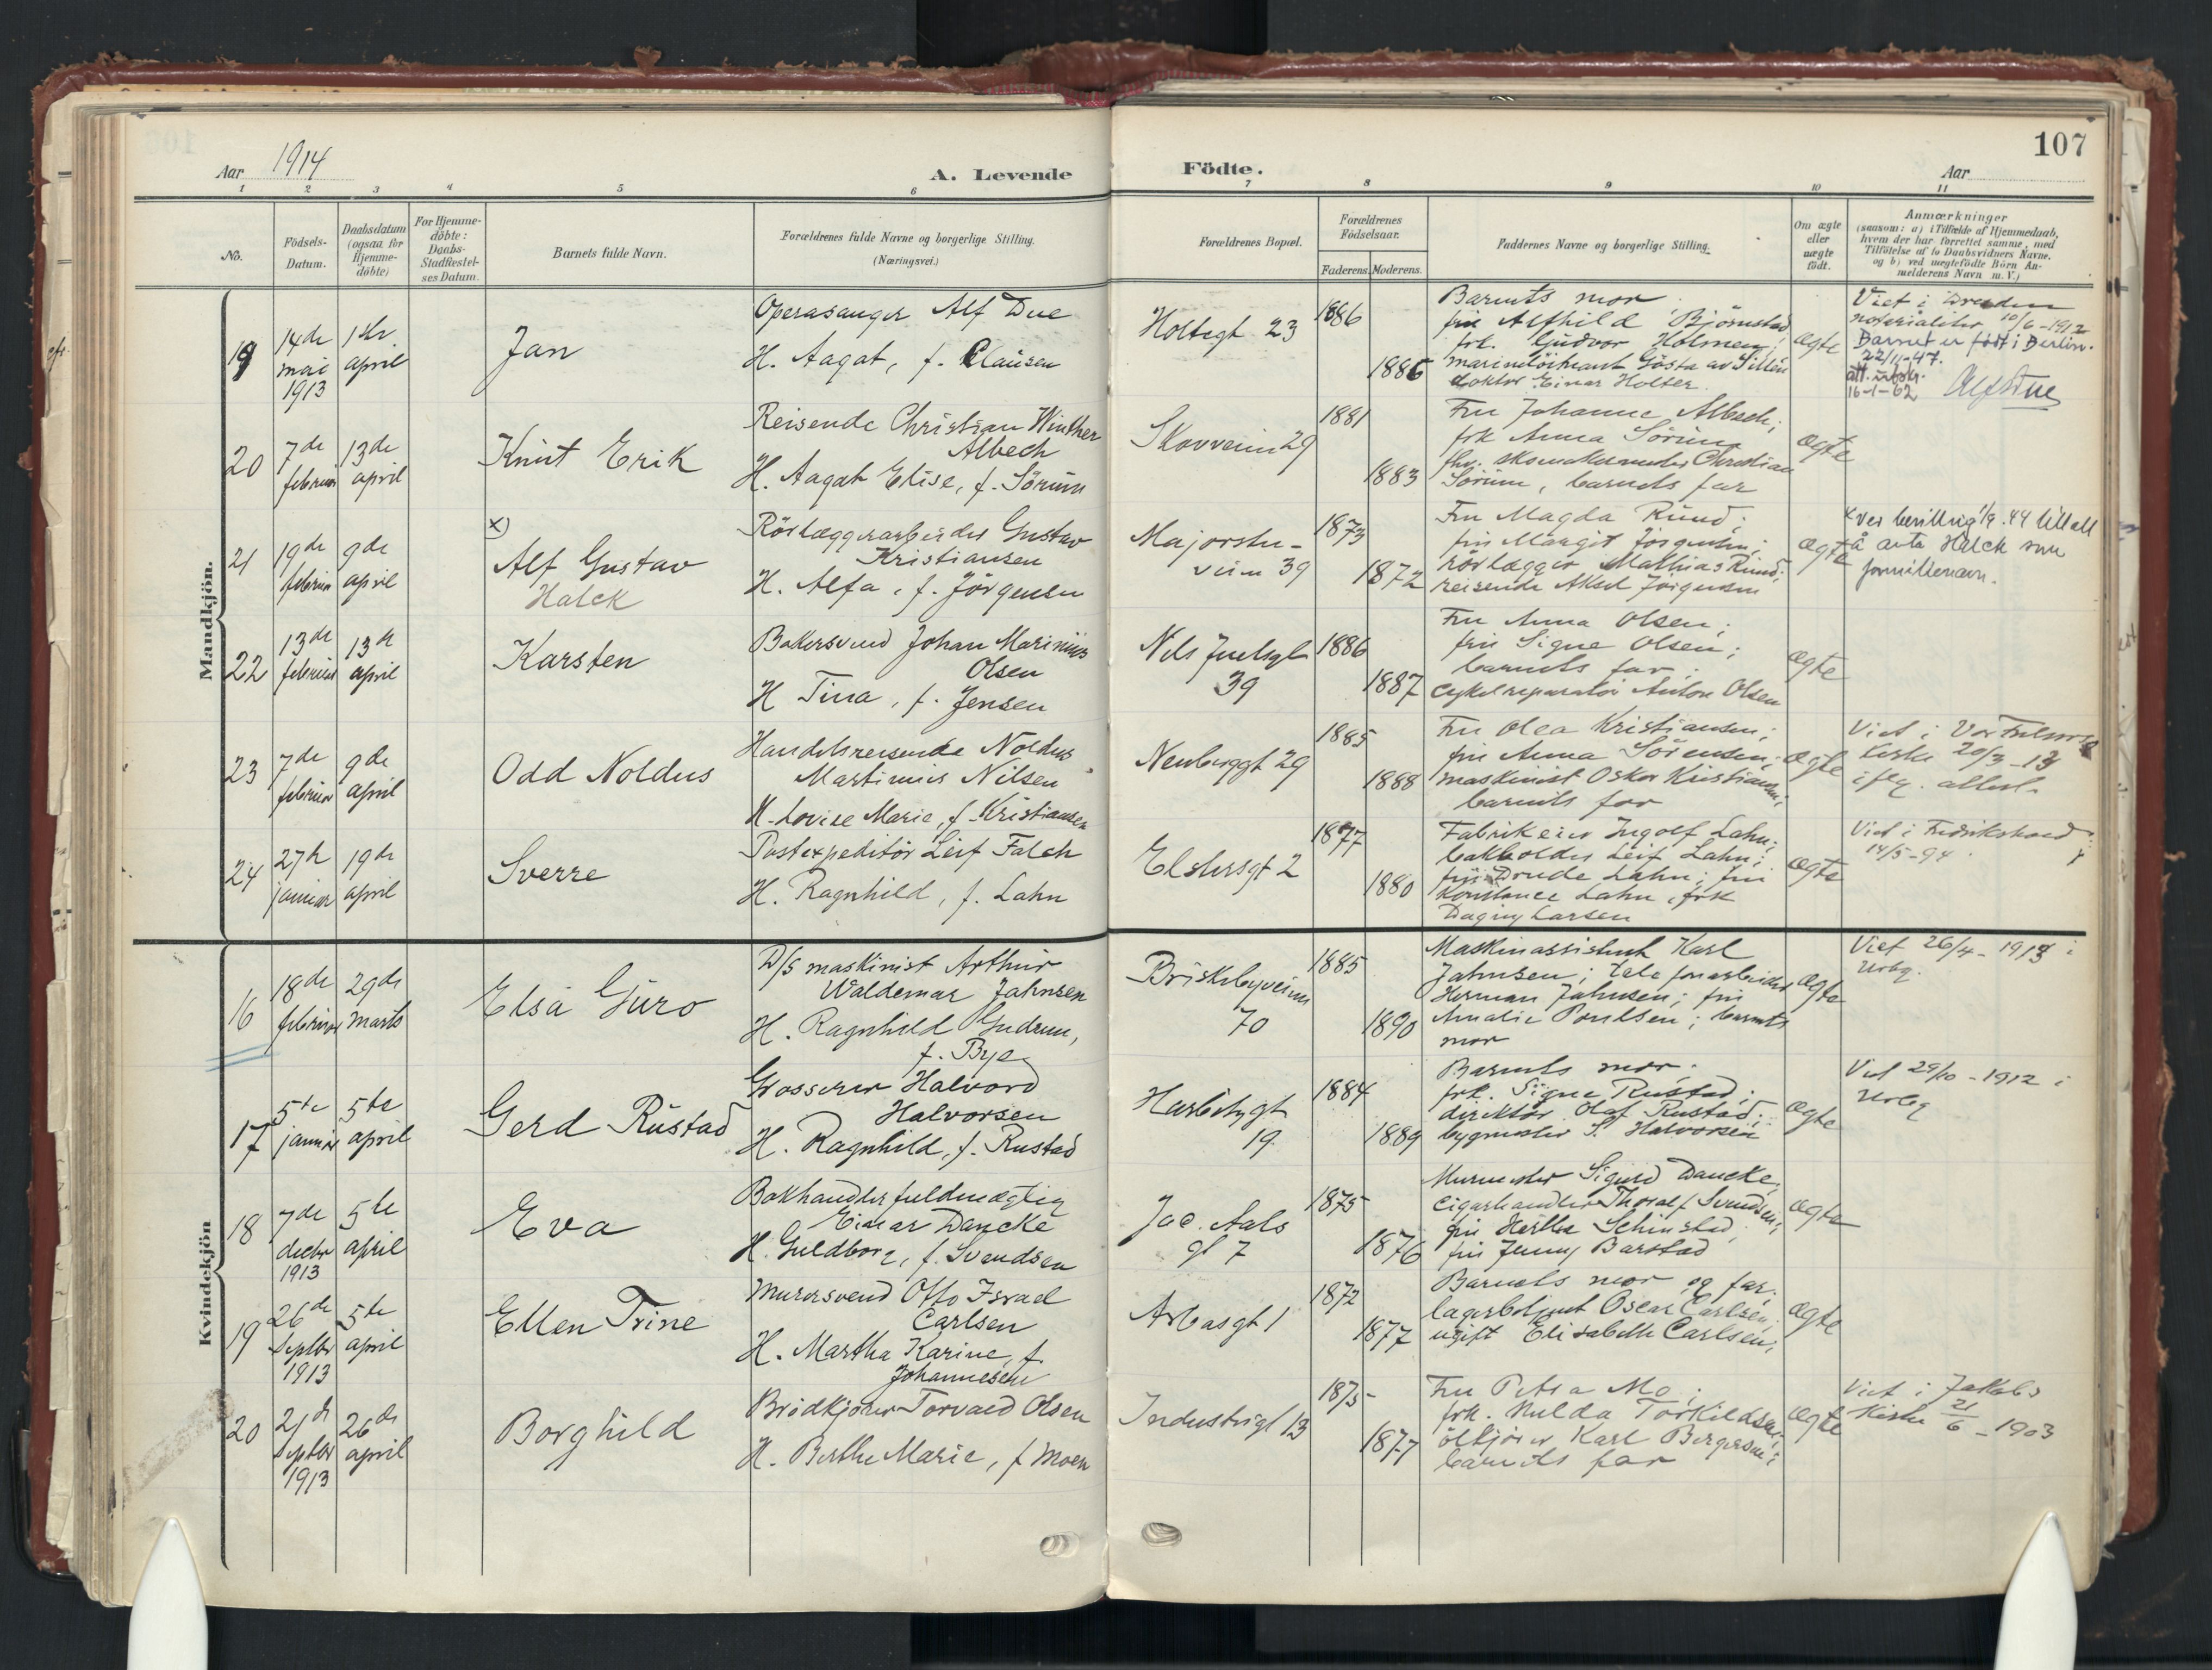 107
Aar 1914
A. Levende
Födte.
Aar
1 2 3 4 5 6 7 8 9 10 11
No.
Födsels-
Datum.
Daabsdatum
(ogsaa for
Hjemme-
döbte)
For Hjemme-
döbte:
Daabs-
Stadfæstel-
ses Datum.
Barnets fulde Navn.
Forældrenes fulde Navne og borgerlige Stilling.
(Næringsvei.)
Forældrenes Bopæl.
Forældrenes
Födselsaar.
Faderens.
Moderens.
Faddernes Navne og borgerlige Stilling.
Om ægte
eller
uægte
födt.
Anmærkninger
(saasom: a) i Tilfælde af Hjemmedaab,
hvem der har forrettet samme, med
Tilföielse af to Daabsvidners Navne.
og b) ved uægtefödte Börn An-
melderens Navn m. V.)
Mandkjön.
19
14de
mai
1913
1ste
april
Jan
Operasanger Alf Due
H. Aagat, f. Clausen
Holtegt 23
1886
1886
Barnets mor
fru Alfhild Björnstad
frk. Gudvor Holmen;
marinelöitnant Gösta av Sillén
doktor Einar Holter
ægte
Viet i Dresden
notarialiter 10/6-1912
Barnet er født i Berlin.
22/11-47.
att. utst.
16-1-62
Alf Due
20
7de
februar
13de
april
Knut Erik
Reisende Christian Winther
Albech
H. Aagat Elise, f. Sörum
Skovveien 29
1881
1883
Fru Johanne Albech;
frk Anna Sörum
fhv. skomakermester Christian
Sörum, barnets far
ægte
21
19de
februar
9de
april
x)
Alf Gustav
Halck
Rörlæggerarbeider Gustav
Kristiansen
H. Alfa, f. Jörgensen
Majorstu-
veien 39
1873
1872
Fru Magda Ruud;
fru Margit Jörgensen;
rörlægger Mathias Ruud;
reisende Aksel Jörgensen
ægte
x ved bevilling 1/9.44 tillatt
å anta Halck som
familienavn.
22
13de
februar
13de
april
Karsten
Bakersvend Johan Marinius
Olsen
H Tina, f. Jensen
Nils Juelsgt
39
1886
1887
Fru Anna Olsen;
fru Signe Olsen;
barnets far;
cykelreparatör Anton Olsen
ægte
23
7de
februar
9de
april
Odd Noldus
Handelsreisende Noldus
Martinius Nilsen
H. Lovise Marie, f. Kristiansen
Neuberggt 29
1885
1888
Fru Olea Kristiansen;
fru Anna Sörensen;
maskinist Oskar Kristiansen;
barnets far
ægte
Viet i Vor Frelsers
kirke 20/3-13
iflg. attest.
24
27de
januar
19de
april
Sverre
Postexpeditör Leif Falch
H. Ragnhild, f. Lahn
Elstersgt 2
1877
1880
Fabrikeier Ingolf Lahn;
bakholder Leif Lahn;
fru Drude Lahn; fru
Konstance Lahn, frk
Dagny Larsen
ægte
Viet i Fredrikshald
14/5-94.
Kvindekjön
16
18de
februar
29de
marts
Elsa Guro
D/S maskinist Arthur
Waldemar Jahnsen
H. Ragnhild Gudrun,
f. Bye
Briskebyveien
70
1885
1890
Maskinassistent Karl
Jahnsen; telefonarbeider
Herman Jahnsen; fru
Amalie Poulsen; barnets
mor
ægte
Viet 26/4-1913 i
Urbg.
17
5te
januar
5te
april
Gerd Rustad
Grosserer Halvord
Halvorsen
H. Ragnhild, f. Rustad
Harbitzgt
19
1884
1889
Barnets mor;
frk. Signe Rustad;
direktör Olaf Rustad;
bygmester S. Halvorsen
ægte
Viet 29/10-1912 i
Urbg
18
7de
decbr
1913
5te
april
Eva
Bokhandlerfuldmægtig
Einar Dancke
H. Guldborg, f. Svendsen
Jac. Aals
gt 7
1875
1876
Murmester Sigurd Dancke;
cigarhandler Thoralf Svendsen;
fru Hertha Schinstad;
fru Jenny Barstad
ægte
19
26de
septbr
1913
5te
april
Ellen Trine
Murersvend Otto Israel
Carlsen
H. Martha Karine, f.
Johannesen
Arbosgt 1
1872
1877
Barnets mor og far;
lagerbetjent Oscar Carlsen
ugift Elisabeth Carlsen;
ægte
20
21de
septbr
1913
26de
april
Borghild
Brödkjörer Torvald Olsen
H. Berthe Marie, f Moen
Industrigt 13
1875
1877
Fru Petra Mo;
frk. Hulda Torkildsen;
ölkjörer Karl Bergersen;
barnets far
ægte
Viet i Jakobs
kirke 21/6-1903